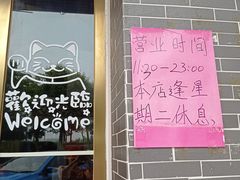 歡迎光臨
Welcome
营业时间
11:30-23:00
本店逢星
期二休息